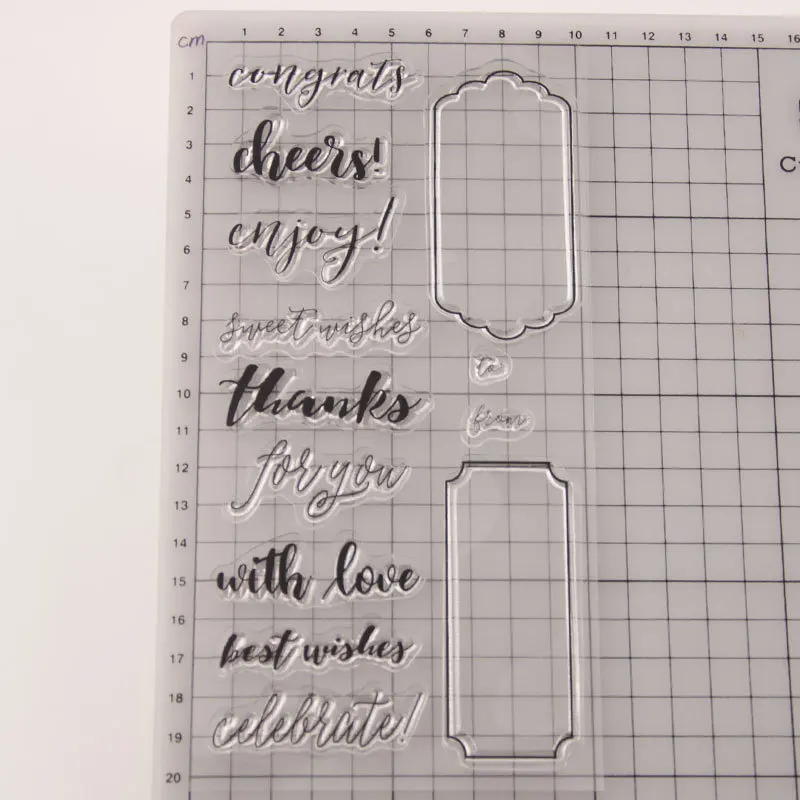 cm
1 2 3 4 5 6 7 8 9 10 11 12 13 14 15 16
1
2
3
4
5
6
7
8
9
10
11
12
13
14
15
16
17
18
19
20
congrats
cheers!
enjoy!
sweet wishes
thanks
for you
with love
best wishes
celebrate!
to
from